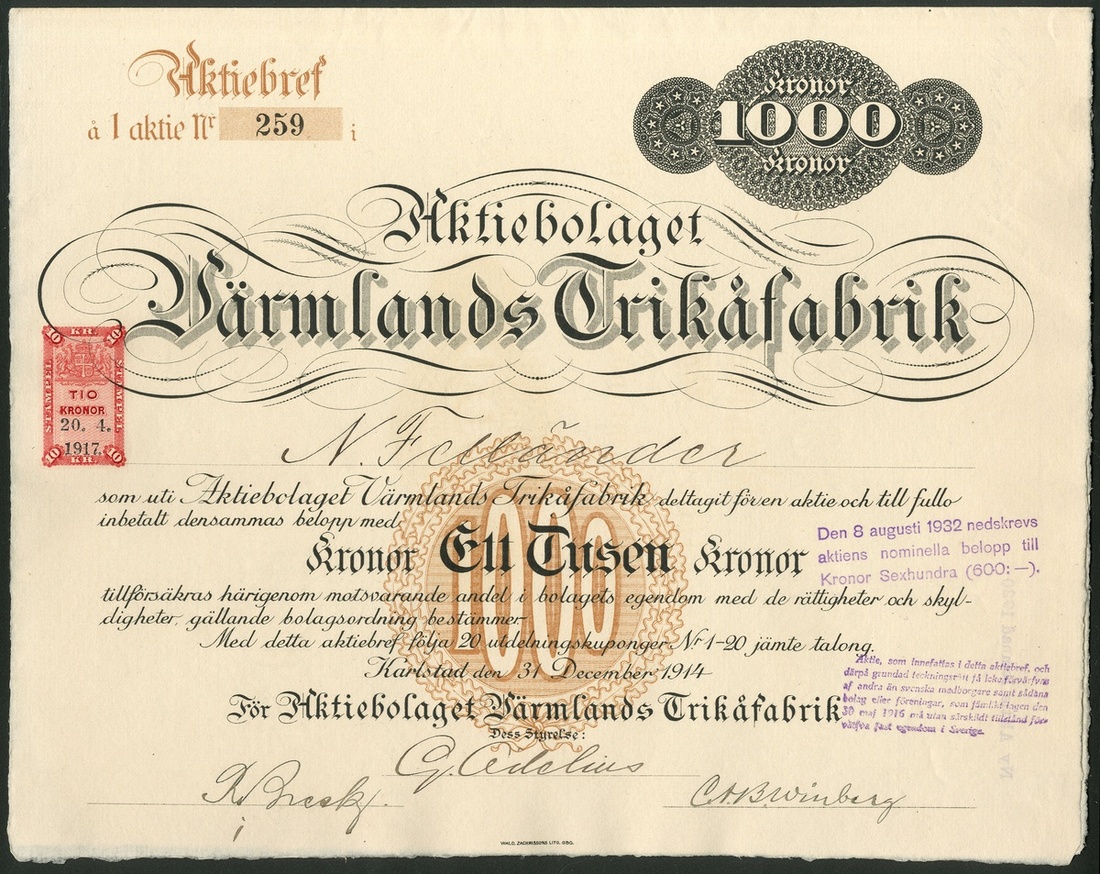 Aktiebref
à 1 aktie Nr 259 i
Kronor
1000
Kronor
Aktiebolaget
Värmlands Trikåfabrik
10 KR. 10
STÄMPEL
TIO
KRONOR
20. 4.
1917.
10 KR. 10
N. Felländer
som uti Aktiebolaget Värmlands Trikåfabrik deltagit för en aktie och till fullo
inbetalt densammas belopp med
1000
Kronor Ett Tusen Kronor
Den 8 augusti 1932 nedskrevs
aktiens nominella belopp till
Kronor Sexhundra (600:—).
tillförsäkras härigenom motsvarande andel i bolagets egendom med de rättigheter och skyl-
digheter, gällande bolagsordning bestämmer.
Med detta aktiebref följa 20 utdelningskuponger Nr 1-20 jämte talong.
Karlstad den 31 December 1914
Aktie, som innefattas i detta aktiebref, och
därpå grundad teckningsrätt få icke förvärfvas
af andra än svenska medborgare samt sådana
bolag eller föreningar, som jämlikt lagen den
30 maj 1916 må utan särskildt tillstånd för-
värfva fast egendom i Sverige.
För Aktiebolaget Värmlands Trikåfabrik
Dess Styrelse:
G. Adelius
C.A.B. Winberg
WALD. ZACHRISSONS LITO. GBG.